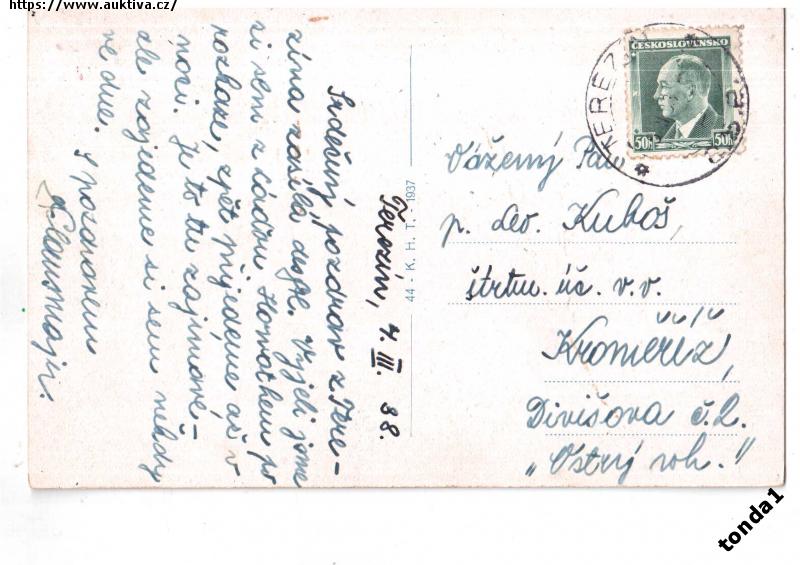 https://www.auktiva.cz/
Terezín, 4. III. 38.
Srdečný pozdrav z Tere-
zína zasílá Vyjeli jsme
si sem z Láďou po
rozkaze, zpět přijedeme až v
noci. Je to tu zajímavé -
ale zajedeme si sem někdy
ve dne. S pozdravem
44 - K. H. T. - 1937
ČESKOSLOVENSKO
50h 50h
Vážený Pan
p. Leo. Kuboš,
štrtm. úč. v. v.
Kroměříž,
Divišova č. 2.
„Ostrý roh."
tonda1